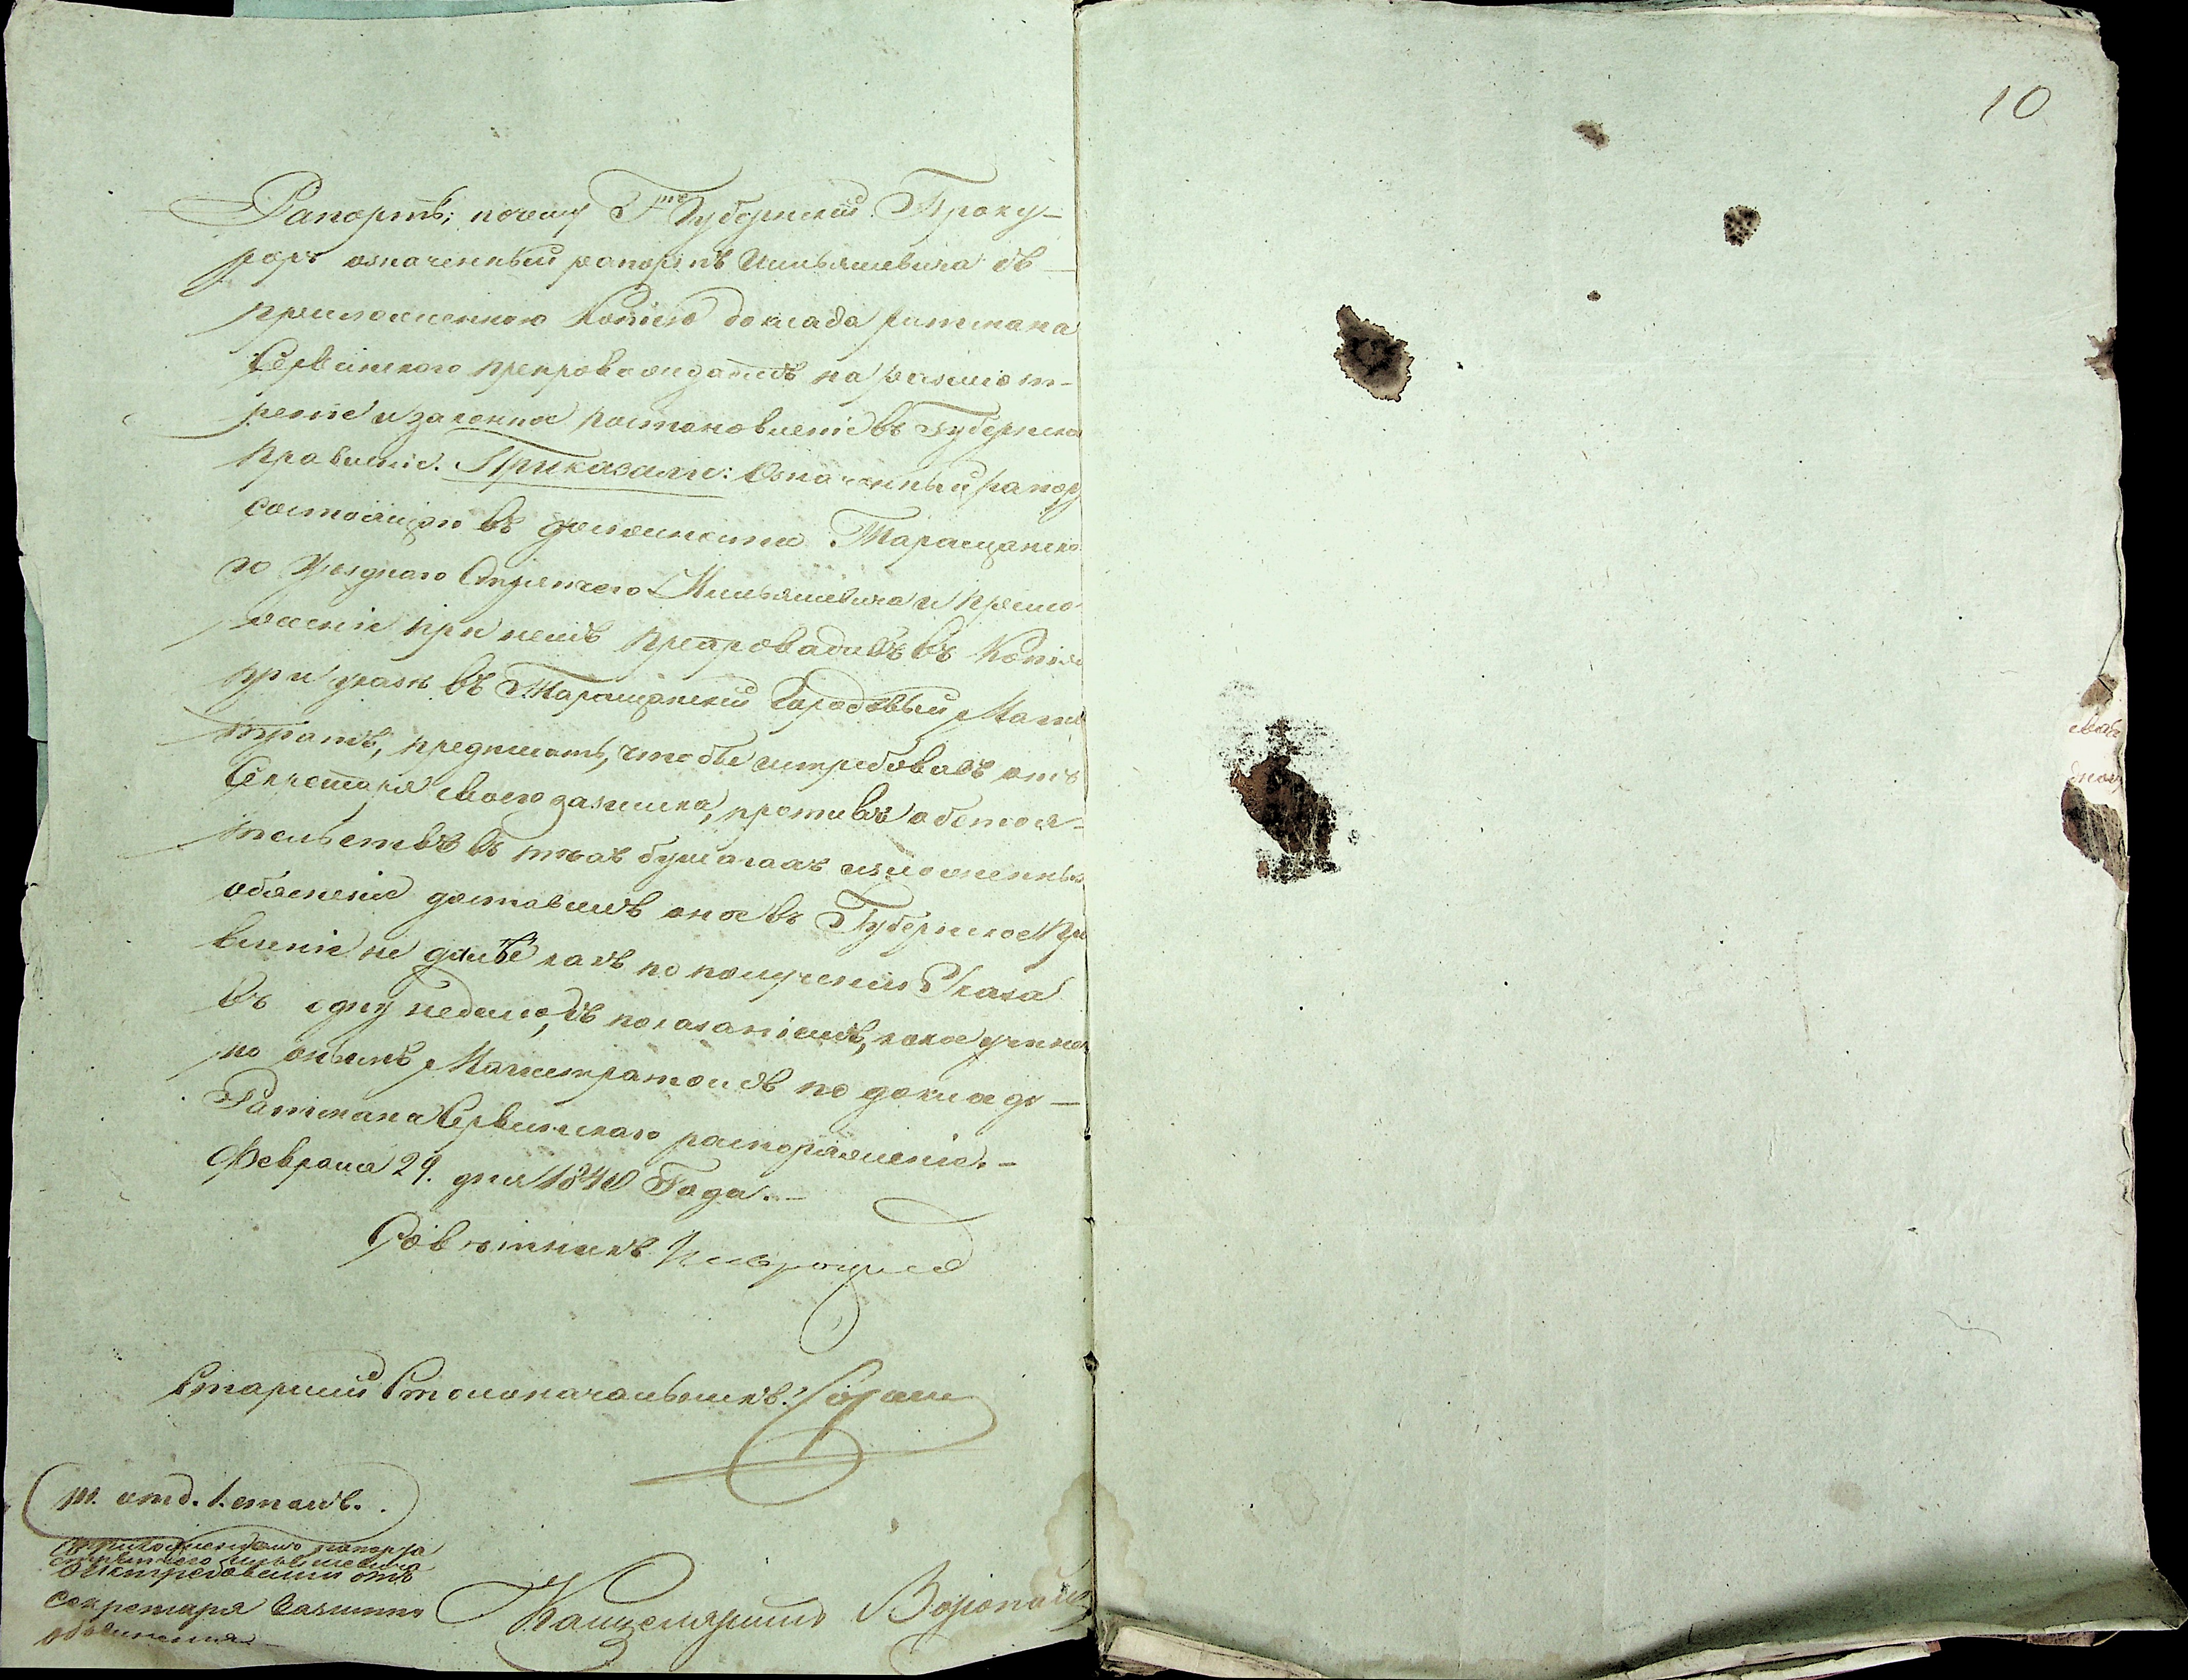 10
Рапортъ; почему Г<sup>нъ</sup> Губернскій Проку-
роръ означенный рапортъ Ильяшевича съ
приложенною копіею доклада ратмана
Сервинского препровождаетъ на разсмот-
реніе и законное постановленіе въ Губернско
правленіе. Приказали: Означенный рапор
состоящаго въ должности Таращанско
го Уезднаго Стряпчего Ильяшевича и прило
женіе при немъ препроводивъ въ Копія
при указѣ въ Таращанскій Городовый Маги
стратъ, предписать, чтобы истребовавъ отъ
Секретаря своего Залишка, противъ обстоя-
тельствъ въ техъ бумагахъ изложенныхъ
обясненіе доставилъ оное въ Губернское Пра
вленіе не далѣе какъ по полученіи Указа
въ одну неделю, съ показаніемъ, какое учинен
но онымъ Магистратомъ по докладу
Ратмана Сервинскаго распоряженіе.-
Февраля 29. дня 1840 Года.-
Совѣтникъ
Старшій Столоначальникъ
III. отд. 1. столъ.
рапорта
стряпчего Ильяшевича
истребованіи отъ
секретаря Залишка
объясненія
Канцеляристъ